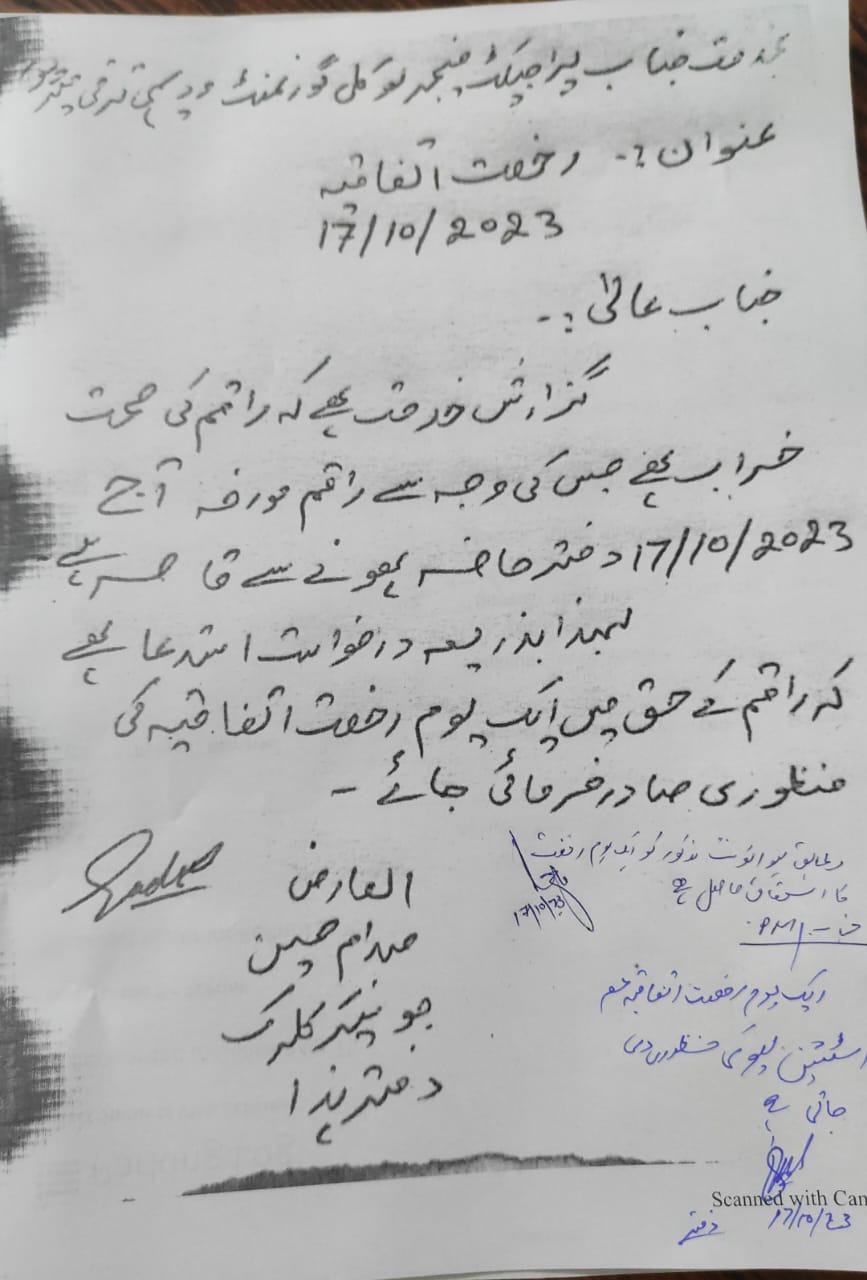 بخدمت جناب پراجیکٹ منیجر لوکل گورنمنٹ و دیہی ترقی
عنوان :- رخصت اتفاقیہ
17/10/2023
جناب عالی :-
گزارش خدمت ہے کہ راقم کی صحت
خراب ہے جس کی وجہ سے راقم مورخہ آج
17/10/2023 دفتر حاضر ہونے سے قاصر ہے -
لہذا بذریعہ درخواست استدعا ہے
کہ راقم کے حق میں ایک یوم رخصت اتفاقیہ کی
منظوری صادر فرمائی جائے -
العارض
صدام حسین
جونیئر کلرک
دفتر ہذا
مذکور کو ایک یوم رخصت
کا استحقاق حاصل ہے
17/10/23
ایک یوم رخصت اتفاقیہ معہ
اسٹیشن لیو کی منظوری دی
جاتی ہے
Scanned with Cam
17/10/23
دفتر